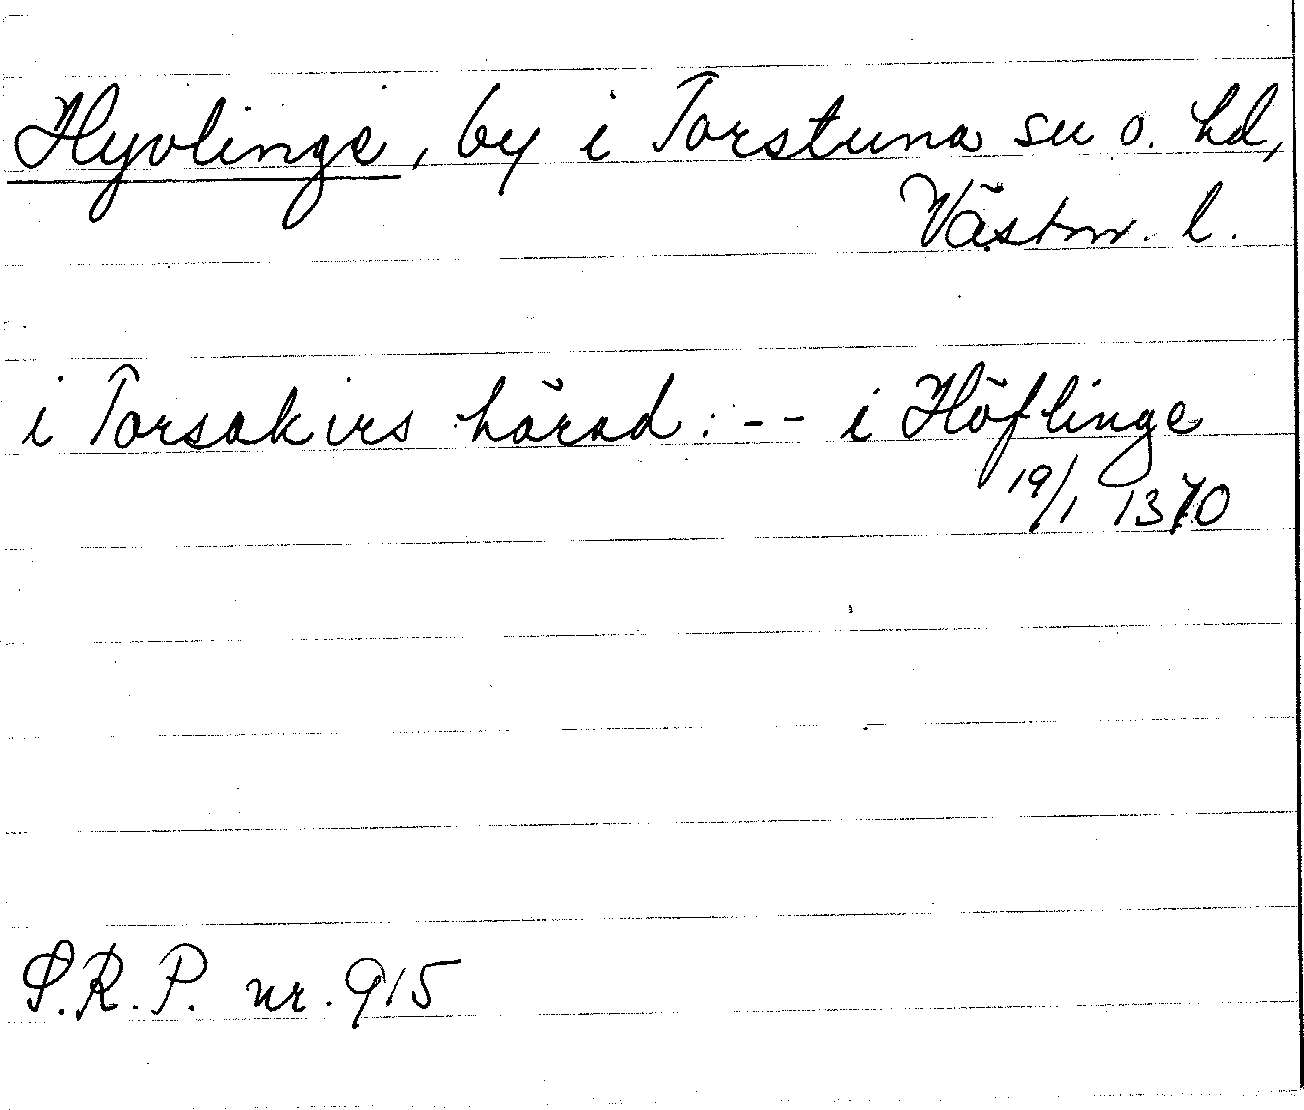 Hyvlinge, by i Torstuna sn o. hd,
Västm. l.
i Torsakirs härad: -- i Höflinge
19/1 1370
S.R.P. nr. 915